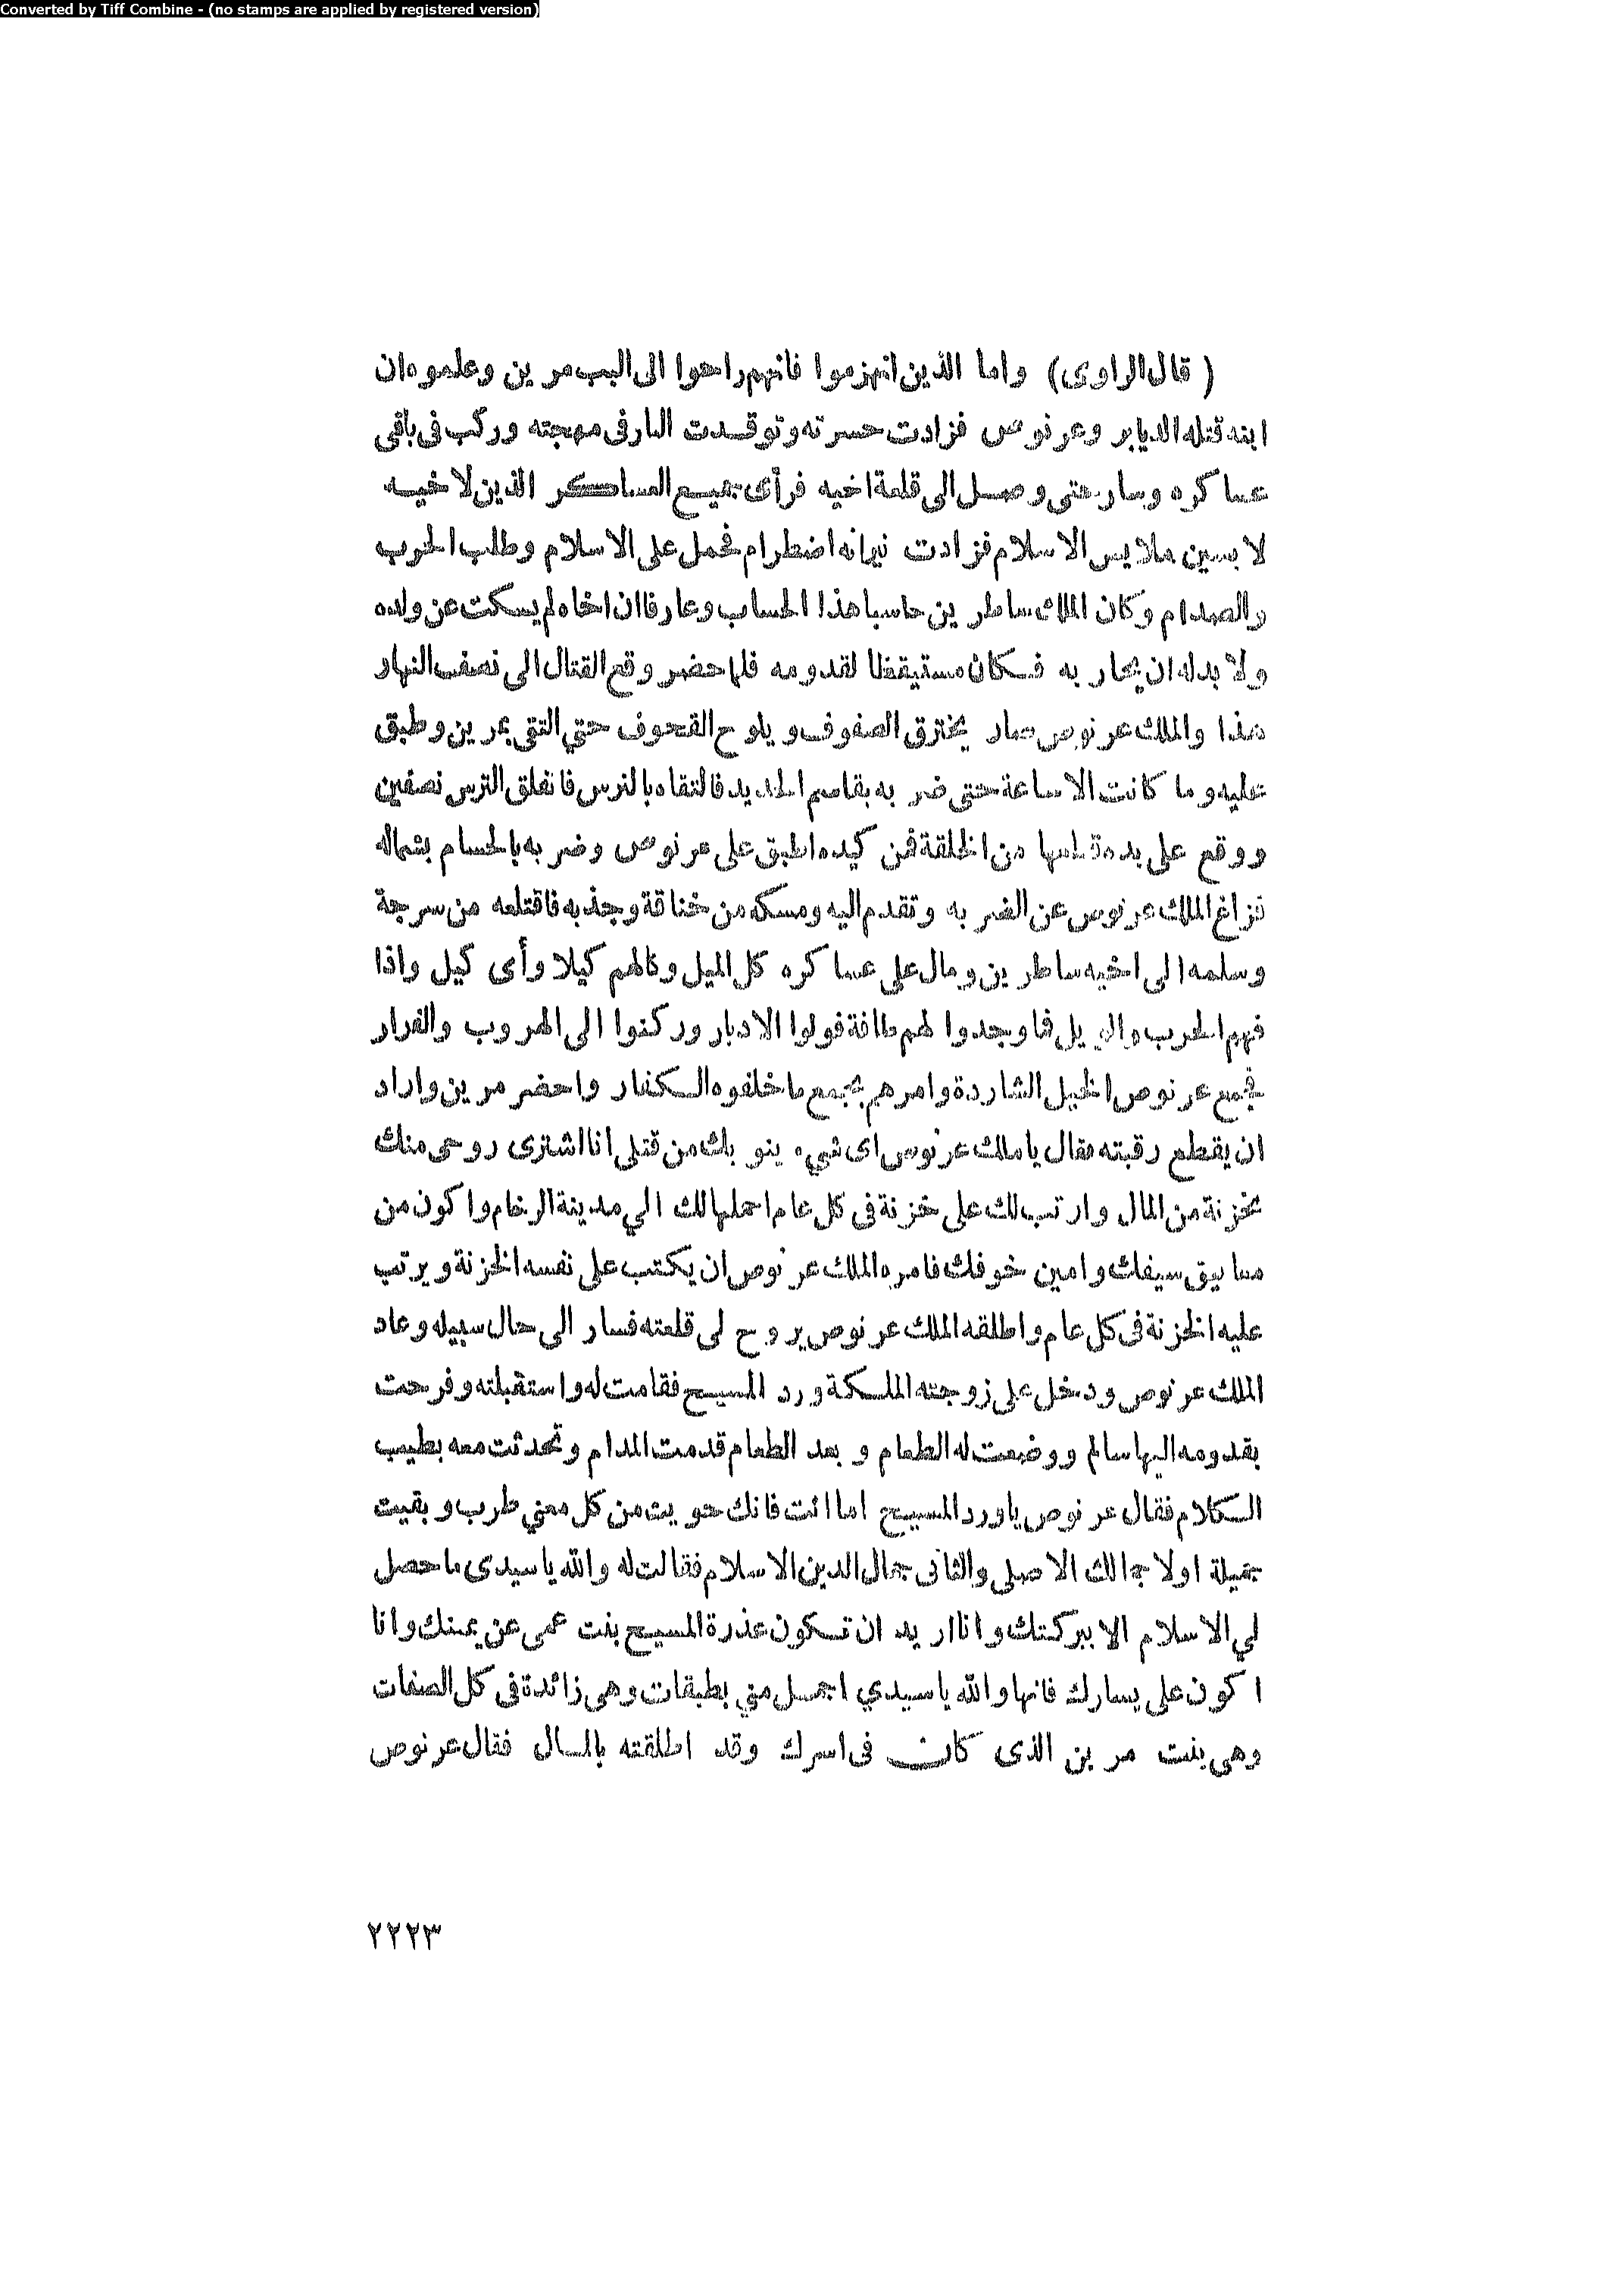 Converted by Tiff Combine - (no stamps are applied by registered version)
( قال الراوى ) واما الذين انهزموا فانهم راحوا الى البب مرين وعلموه ان
ابنه قتله الديابر وعرنوص فزادت حسرته وتوقدت النار فى مهجته وركب فى باقى
عساكره وسار حتى وصل الى قلعة اخيه فرأى جميع العساكر الذين لاخيه
لابسين ملابس الاسلام فزادت نيرانه اضطرام فحمل على الاسلام وطلب الحرب
والصدام وكان الملك ساطرين حاسبا هذا الحساب وعارفا ان اخاه لم يسكت عن ولده
ولا بد له ان يحاربه فكان مستيقظا لقدومه فلما حضر وقع القتال الى نصف النهار
هذا والملك عرنوص صار يخترق الصفوف ويلوح القحوف حتي التقى بمرين وطبق
عليه وما كانت الا ساعة حتى ضربه بقاسم الحديد فالتقاه بالترس فانفلق الترس نصفين
ووقع على يده قطعها من الخلقة فمن كيده اطبق على عرنوص وضربه بالحسام بشماله
فزاغ الملك عرنوص عن الضربه وتقدم اليه ومسكه من خناقة وجذبه فاقتلعه من سرجة
وسلمه الى اخيه ساطرين ومال على عساكره كل الميل وكالهم كيلا وأى كيل واذا
فهم الحرب والويل فما وجدوا لهم طاقة فولوا الادبار وركنوا الى الهروب والفرار
فجمع عرنوص الخيل الشاردة وامرهم بجمع ما خلفوه الكفار واحضر مرين واراد
ان يقطع رقبته فقال يا ملك عرنوس اى شيء ينوبك من قتلى انا اشترى روحى منك
بخزنة من المال وارتب لك على خزنة فى كل عام احملها لك الي مدينة الرخام واكون من
معاتيق سيفك وامين خوفك فامره الملك عرنوص ان يكتب على نفسه الخزنة ويرتب
عليه الخزنة فى كل عام واطلقه الملك عرنوص يروح لى قلعته فسار الى حال سبيله وعاد
الملك عرنوص ودخل على زوجته الملكة ورد المسيح فقامت له واستقبلته وفرحت
بقدومه اليها سالم ووضعت له الطعام وبعد الطعام قدمت المدام وتحدثت معه بطيب
الكلام فقال عرنوص ياورد المسيح اما انت فانك حويت من كل معني طرب وبقيت
جميلة اولا جمالك الاصلى والثانى جمال الدين الاسلام فقالت له والله يا سيدى ما حصل
لي الاسلام الا ببركتك وانا اريد ان تكون عذرة المسيح بنت عمى عن يمينك وانا
اكون على يسارك فانها والله يا سيدي اجمل مني بطبقات وهى زائدة فى كل الصفات
وهى بنت مرين الذى كان فى اسرك وقد اطلقته بالمال فقال عرنوص
٢٢٢٣